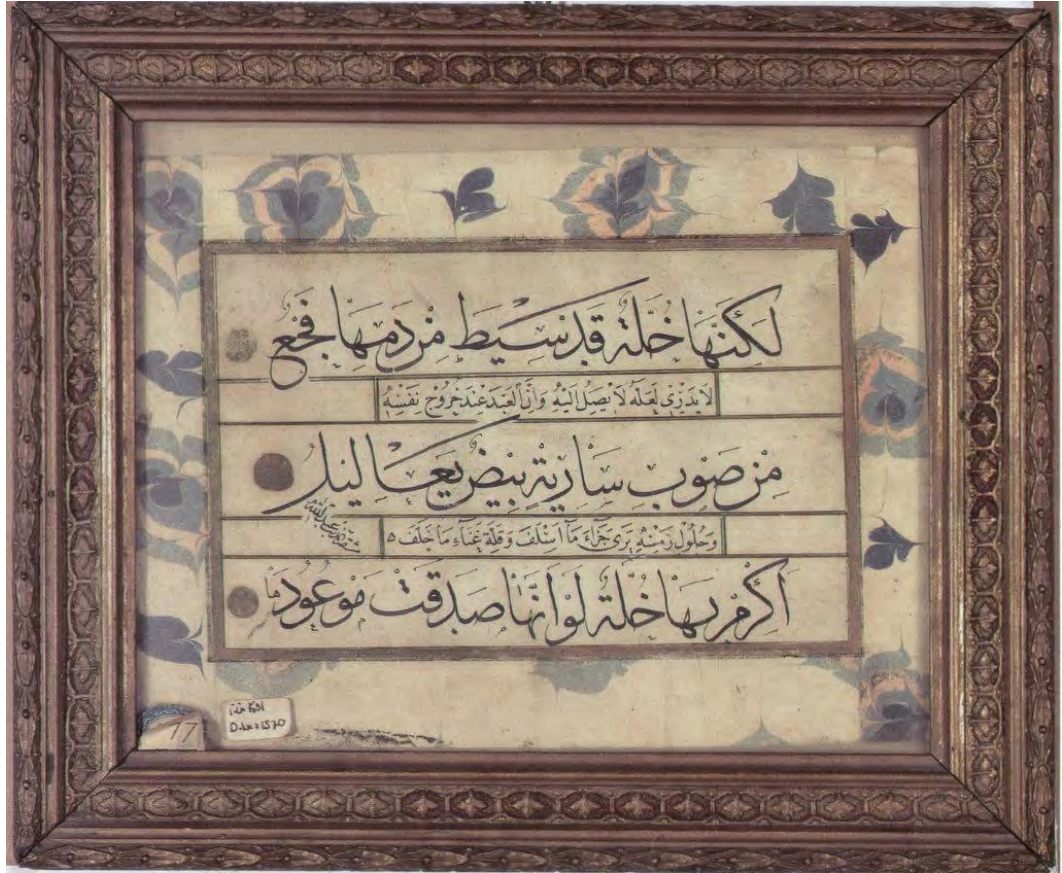 لَكِنَّهَا خُلَّةٌ قَدْ سِيطَ مِنْ دَمِهَا فَجْعٌ
لَا يَدْرِي لَعَلَّهُ لَا يَصِلُ اِلَيْهِ وَاِنَّ الْعَبْدَ عِنْدَ خُرُوجِ نَفْسِهِ
مِنْ صَوْبِ سَارِيَةٍ بِيضٌ يَعَالِيلُ
وَحُلُولِ رَمْسِهِ يَرَى جَزَاءَ مَا اَسْلَفَ وَقِلَّةَ غَنَاءِ مَا خَلَّفَ ٥
اَكْرِمْ بِهَا خُلَّةً لَوْ اَنَّهَا صَدَقَتْ مَوْعُودَهَا
17
D.Lx:1570